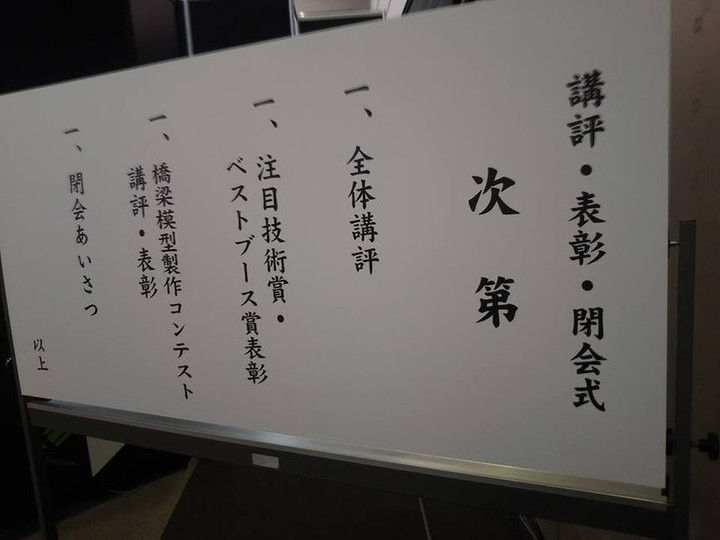 講評・表彰・閉会式
次第
一、全体講評
一、注目技術賞・
ベストブース賞表彰
一、橋梁模型製作コンテスト
講評・表彰
一、閉会あいさつ
以上